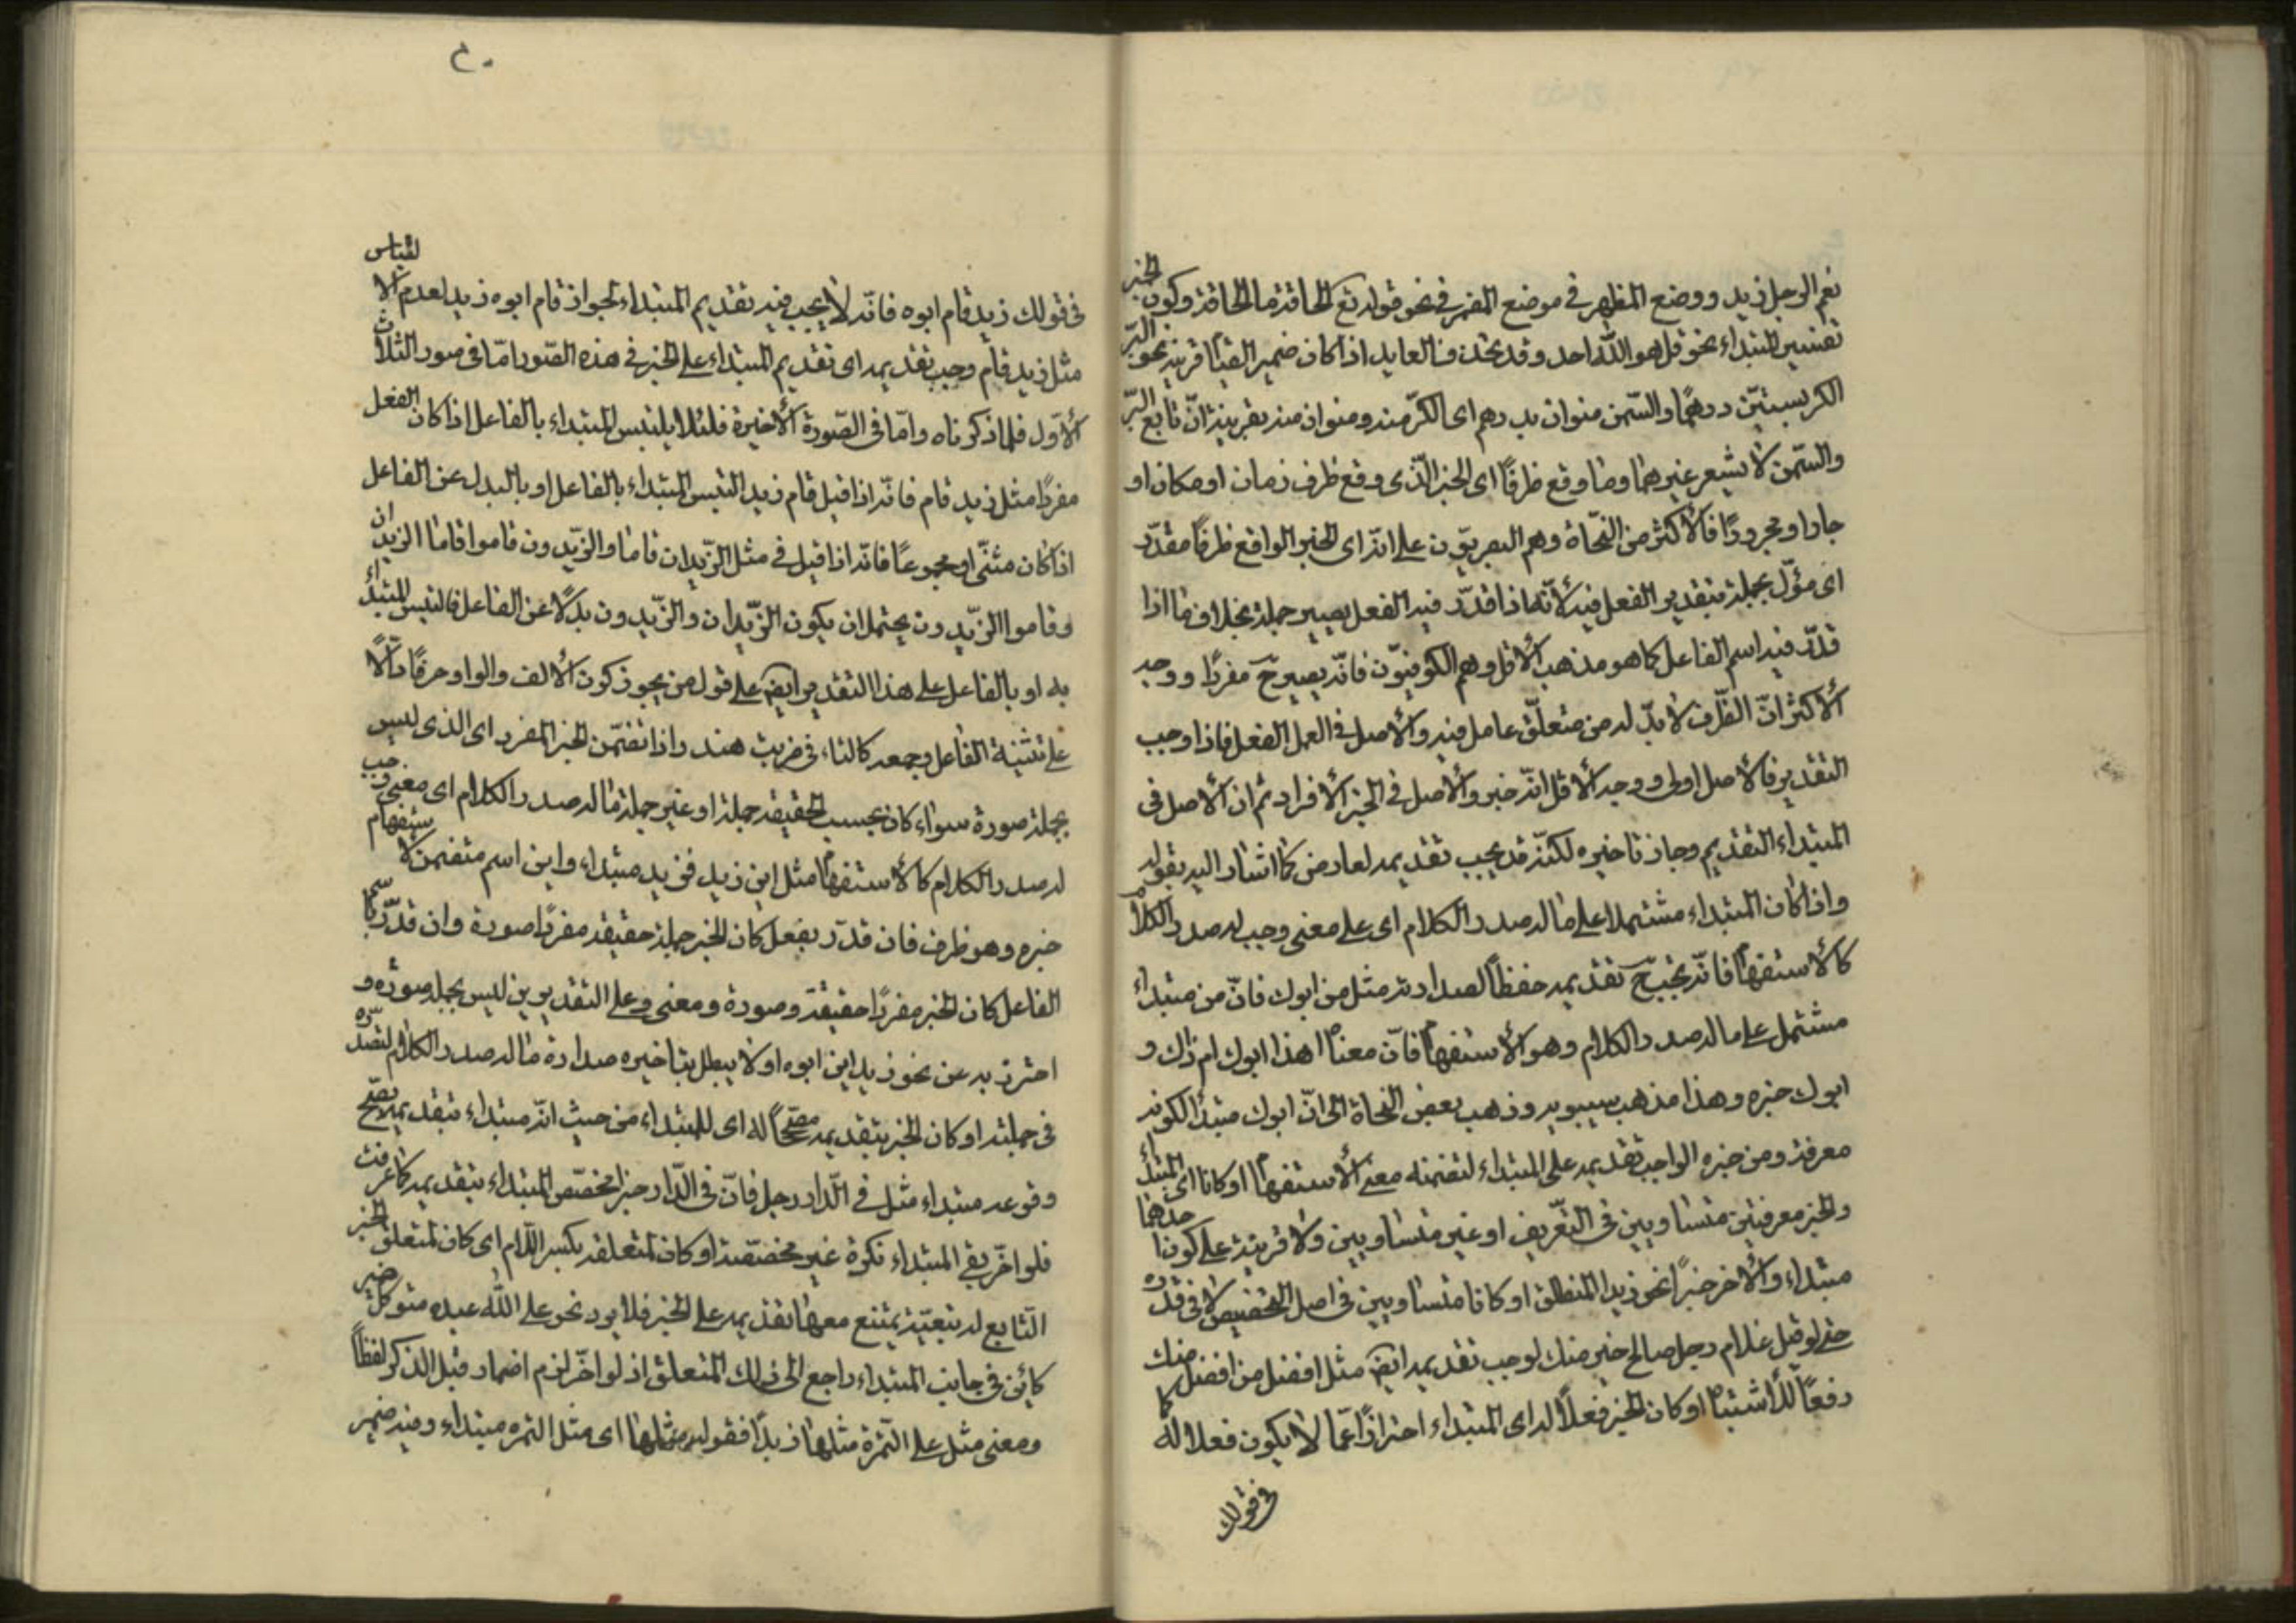 نعم الرجل زيد ووضع المظهر في موضع المضمر في نحو قوله تع الحاقة ما الحاقة وكون الخبر
تفسير للمبتداء نحو قل هو الله احد وقد يحذف العايد اذا كان ضمير القيام قرينة نحو البرّ
الكر بستّين درهمًا والسّمن منوان بدرهم اى الكرّ منه ومنوان منه بقرينة انّ تابع البرّ
والسّمن لا يسعر غيرهما وما وقع ظرفًا اى الخبر الّذى وقع ظرف زمان او مكان او
جارا ومجرورًا فالأكثر من النّحاة وهم البصريّون على انّه اى الخبر الواقع ظرفًا مقدّر
اى مؤّل بجملة بتقدير الفعل فيه لأنّه اذا قدّر فيه الفعل يصير جملة بخلاف ما اذا
قدّر فيه اسم الفاعل كما هو مذهب الأقل وهم الكوفيّون فانّه يصير حَ مفردًا ووجه
الأكثر انّ الظّرف لا بدّ له من متعلّق عامل فيه والأصل في العمل الفعل فاذا وجب
التقدير فالأصل اولى ووجه الأقل انّه خبر والأصل في الخبر الأفراد ثم ان الأصل فى
المبتداء التقديم وجاز تاخيره لكنّه قد يجب تقديمه لعارض كما اشار اليه بقوله
واذا كان المبتداء مشتملا على ما له صدر الكلام اى على معنى وجب له صدر الكلام
كالأستفهام فانّه يجب حَ تقديمه حفظًا لصدارته مثل من ابوك فانّ من مبتداء
مشتمل على ما له صدر الكلام وهو الأستفهام فانّ معناه اهذا ابوك ام ذاك و
ابوك خبره وهذا مذهب سيبويه وذهب بعض النحاة الى انّ ابوك مبتدأ لكونه
معرفة ومن خبره الواجب تقديمه على المبتداء لتضمنه معنى الأستفهام او كانا اى المبتداء
والخبر معرفتين متساويين فى التعّريف او غير متساويين ولا قرينة على كون احدهما
مبتداء والأخر خبرًا نحو زيد المنطلق او كانا متساويين فى اصل التخصيص لا فى قدره
حتى لو قيل غلام رجل صالح خير منك لوجب تقديمه ايضَ مثل افضل من افضل منك
دفعًا للأشتباه او كان الخبر فعلًا له اى المبتداء احترازًا عمّا لا يكون فعلا له كما
فى قولك
فى قولك زيد قام ابوه فانّه لا يجب فيه تقديم المبتداء لجواز قام ابوه زيد لعدم الالتباس
مثل زيد قام وجب تقديمه اى تقديم المبتداء على الخبر فى هذه الصّور امّا فى صور الثلاث
الأوّل فلما ذكرناه وامّا فى الصّورة الأخيرة فلئلا يلتبس المبتداء بالفاعل اذا كان الفعل
مفردًا مثل زيد قام فانّه اذا قيل قام زيد التبس المبتداء بالفاعل او بالبدل عن الفاعل
اذا كان مثنّى او مجموعًا فانّه اذا قيل في مثل الزّيدان قاما والزّيدون قاموا قاما الزيدان
وقاموا الزّيدون يحتمل ان يكون الزّيدان والزّيدون بدلًا عن الفاعل فالتبس المبتداء
به او بالفاعل على هذا التقدير ايضَ على قول من يجوز كون الألف والواو حرفًا دالًّا
على تثنية الفاعل وجمعه كالتاء فى ضربت هند واذا تضّمن الخبر المفرد اى الذى ليس
بجملة صورة سواء كان بحسب الحقيقة جملة او غير جملة ما له صدر الكلام اى معنى وجب
له صدر الكلام كالأستفهام مثل اين زيد فزيد مبتداء واين اسم متضمن لاستفهام
خبره وهو ظرف فان قدّر بفعل كان الخبر جملة حقيقة مفردًا صورة وان قدّر باسم
الفاعل كان الخبر مفردًا حقيقة وصورة ومعنى وعلى التقديرين ليس بجملة صورة و
احترز به عن نحو زيد اين ابوه اذ لا يبطل بتاخيره صدارة ما له صدر الكلام لتصدّره
فى جملته او كان الخبر بتقديمه مصحّحًا له اى للمبتداء من حيث انّه مبتداء فبتقديمه يصحّ
وقوعه مبتداء مثل في الّدار رجل فانّ فى الدّار خبر تخصّص المبتداء بتقديمه كما عرفت
فلو اخّر بقى المبتداء نكرة غير مخصّصة او كان لمتعلقه بكسر اللّام اى كان لمتعلق الخبر
التّابع له تبعيّة يمتنع معها تقديمه على الخبر فلا يرد نحو على الله عبده متوكل ضمير
كائن فى جانب المبتداء راجع الى ذلك المتعلق اذ لو اخّر لزم اضمار قبل الذكر لفظًا
ومعنى مثل على التمّرة مثلها زبدًا فقوله مثلها اى مثل التمره مبتداء وفيه ضمير